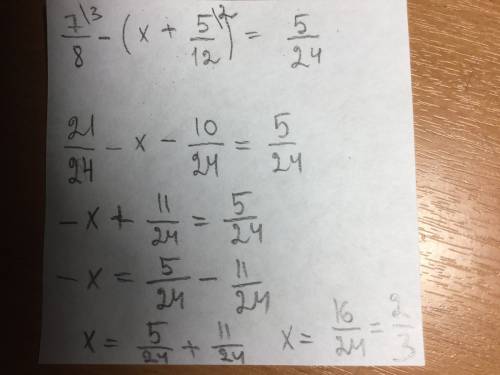 7\3/8 - (x + 5\2/12) = 5/24
21/24 - x - 10/24 = 5/24
-x + 11/24 = 5/24
-x = 5/24 - 11/24
x = 5/24 + 11/24 x = 16/24 = 2/3